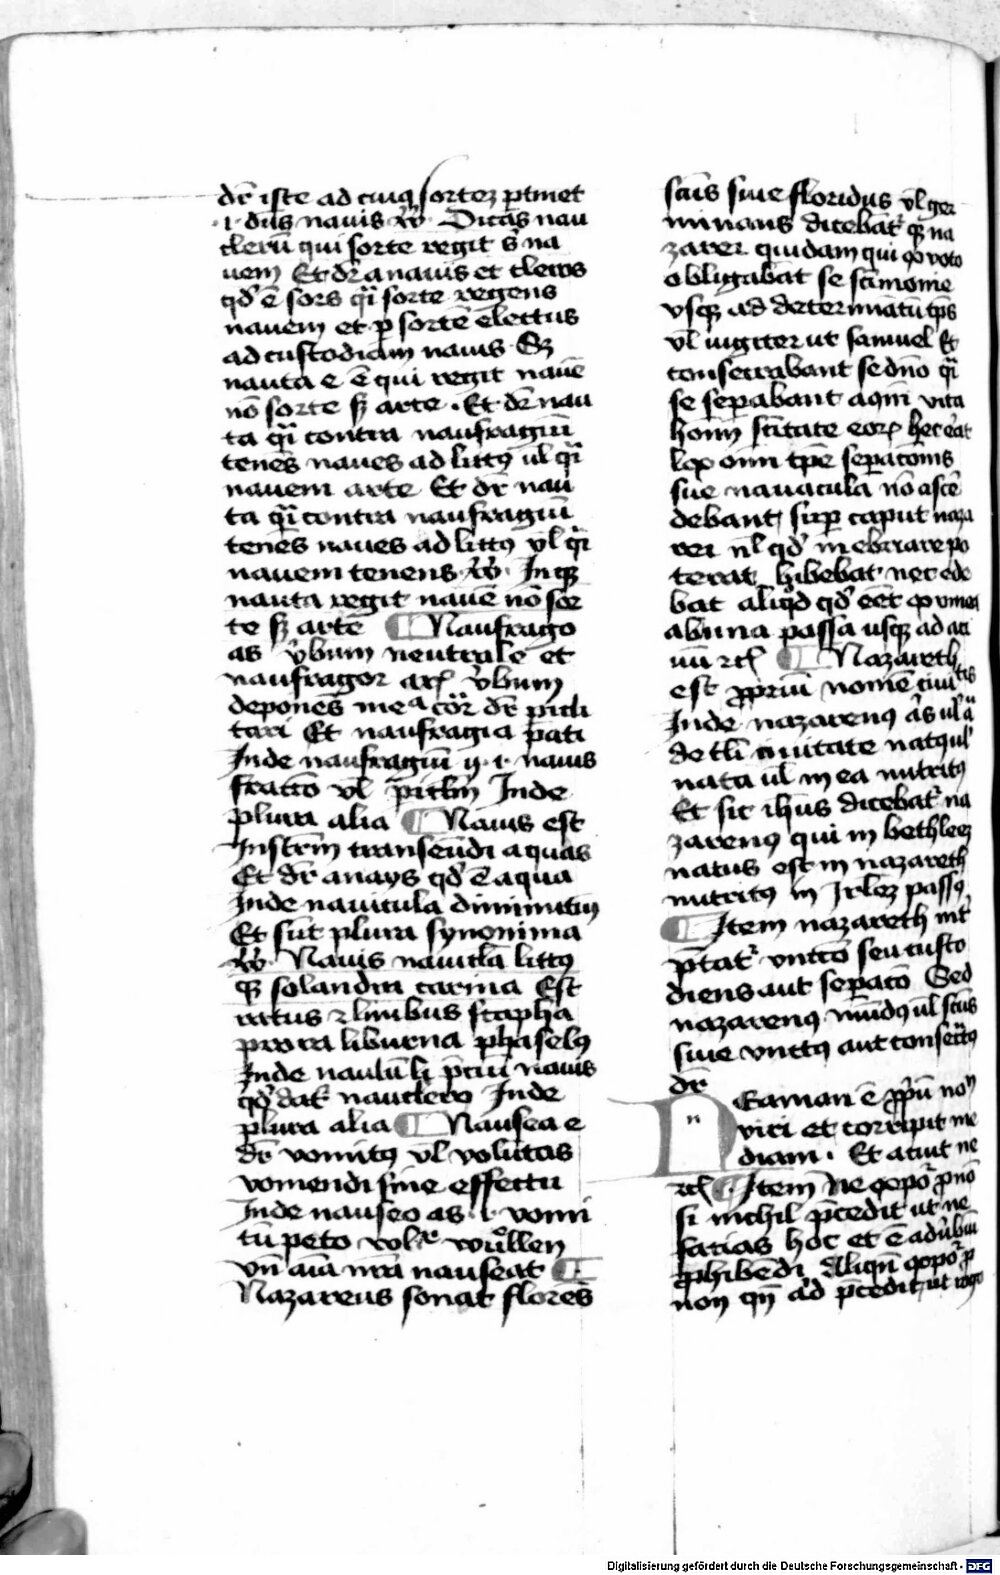 dr̄ iste ad cuiꝰ sortez ꝑtinet
·i· dn̄s nauis vͦ Dicas nau
clerū qui sorte regit s̄ na
uem Et dr̄ a nauis et cleros
qd̕ ē sors q̄i sorte regens
nauem et ꝑ sortē electus
ad custodiam nauis Sꝫ
nauta e ē qui regit nauē
nō sorte sꝫ arte · Et dr̄ nau
ta q̄i contra naufragiū
tenēs naues ad littꝰ ul̕ q̄i
nauem arte Et dr̄ nau
ta q̄i contra naufragiū
tenēs naues ad littꝰ vl̕ q̄i
nauem tenens vͦ Inqꝫ
nauta regit nauē nō sor
te sꝫ arte ¶ Naufrago
as v̕bum neutrale et
naufragor arꝭ v̕bum
deponēs me a cōr dr̄ picli
tari Et naufragia pati
Inde naufragiū ij ·i· nauis
fractō vl̕ pericl̄m Inde
plura alia ¶ Nauis est
Instr̄m transeūdi aquas
Et dr̄ a nays qd̕ ē aqua
Inde nauicula diminitiū
Et sūt plura synonima
vͦ Nauis nauicl̄a littꝰ
qꝫ solandria carina Est
ratus ⁊ limbus scapha
prora liburna phaselꝰ
Inde naulū li p̄ciū nauis
qd̕ dat̄ nauclero Inde
plura alia ¶ Nausea e
dr̄ vomitꝰ vl̕ volūtas
vomendi sine effectu
Inde nauseo as ·i· vomi
tū peto wllen
vn̄ aīa nr̄a nauseat ¶
Nazareus sonat flores
scūs siue floridus vl̕ ger
minans dicebat̄ qꝫ na
zarei quidam qui ꝓ voto
obligabāt se scīmonie
vsqꝫ ad determinatū tp̄s
vl̕ iugiter ut samuel Et
consecrabant se dn̄o q̄i
se sepabant a qm̄i vita
hoīm scītate eoꝝ hec erat
lex om̄i tp̄e sepacōnis
sue nauacula nō ascē
debant sup caput naza
rei nl̕ qd̕ inebriare po
terat bibebat nec ede
bat aliqd̕ qd̕ eēt ex vinea
ab vua passa usqꝫ ad aci
nū ⁊cꝭ ¶ Nazareth
est ꝓpriū nomē ciuitatis
Inde nazarenꝰ a̕s ul̕ a
de tl̄i ciuitate natꝰ ul̕
nata ul̕ in ea nutritꝰ
Et sic ihūs dicebat̄ na
zarenꝰ qui in bethleez
natus est in nazareth
nutritꝰ in Irl̄ez passꝰ
¶ Item nazareth int̄
p̄tat̄ vnctō seu custo
diens aut sepatō Sed
nazarenꝰ mūdꝰ ul̕ scūs
siue vnctꝰ aut consecratꝰ
dr̄
Naaman ē ꝓpū non
viri et corripit me
diam · Et acuit ne
⁊cꝭ · Item Ne ꝓpō
si nichil p̄cedit ut ne
facias hoc et ē aduerbiū
ꝓhibēdi Aliqn̄ ꝓpō ꝓ
non qn̄ ad p̄cedit ut rogo